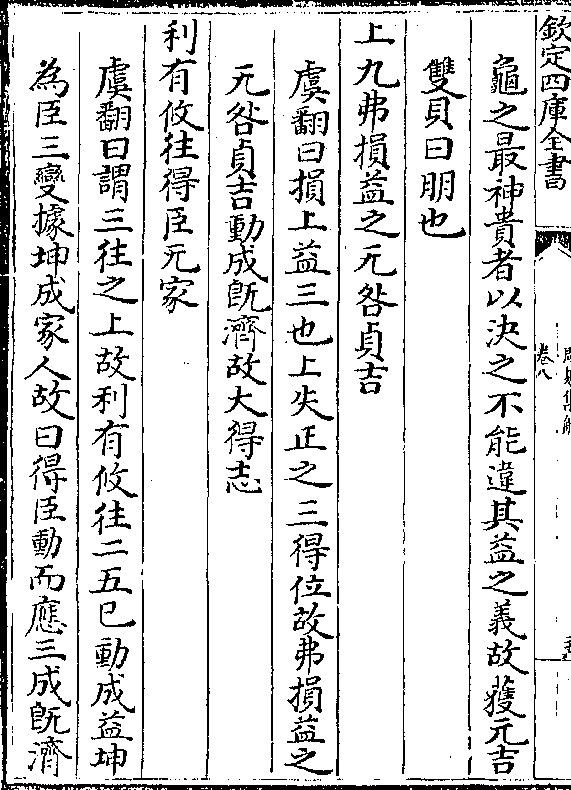 欽定四庫全書
卷八
龜之最神貴者以決之不能違其益之義故獲元吉
雙貝曰朋也
上九弗損益之无咎貞吉
虞翻曰損上益三也上失正之三得位故弗損益之
无咎貞吉動成旣濟故大得志
利有攸往得臣无家
虞翻曰謂三往之上故利有攸往二五已動成益坤
為臣三變據坤成家人故曰得臣動而應三成旣濟